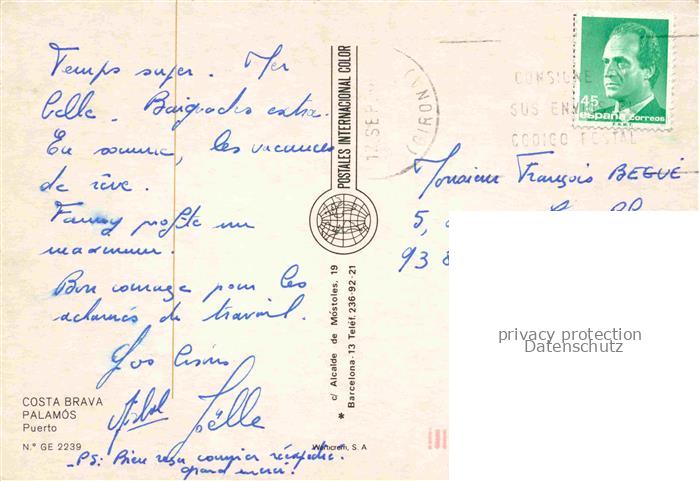 Temps super. Mer
belle. Baignades extra.
En somme, les vacances
de rêve.
Fanny profite un
maximum.
Bon courage pour les
acharnés de travail.
Vos
Joëlle
PS: Bien reçu courrier
grand merci!
COSTA BRAVA
PALAMÓS
Puerto
N.° GE 2239
POSTALES INTERNACIONAL COLOR
c/ Alcalde de Móstoles, 19
Barcelona-13 Teléf. 236-92-21
S. A
12 SEP
(GIRON
CONSIGNE EN
SUS ENVIOS EL
CODIGO POSTAL
45
españa correos
Monsieur François BEGUÉ
5,
93 8
privacy protection
Datenschutz